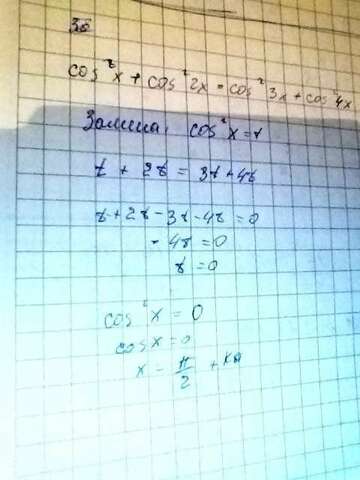 38
cos²x + cos²2x = cos²3x + cos²4x
Замина, cos²x = t
t + 2t = 3t + 4t
t + 2t - 3t - 4t = 0
- 4t = 0
t = 0
cos²x = 0
cosx = 0
x = π/2 + kπ